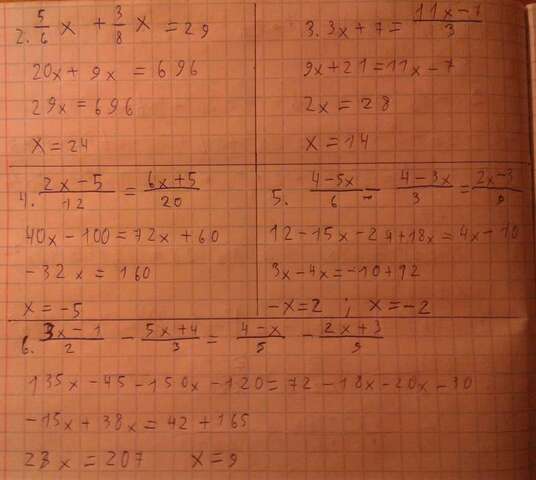 2. 5/6 x + 3/8 x = 29
20x + 9x = 696
29x = 696
x = 24
3. 3x + 7 = (11x - 7)/3
9x + 21 = 11x - 7
2x = 28
x = 14
4. (2x - 5)/12 = (6x + 5)/20
40x - 100 = 72x + 60
-32x = 160
x = -5
5. (4 - 5x)/6 - (4 - 3x)/3 = (2x - 3)/9
12 - 15x - 24 + 18x = 4x - 10
3x - 4x = -10 + 12
-x = 2 ; x = -2
6. (3x - 1)/2 - (5x + 4)/3 = (4 - x)/5 - (2x + 3)/9
135x - 45 - 150x - 120 = 72 - 18x - 20x - 30
-15x + 38x = 42 + 165
23x = 207 x = 9